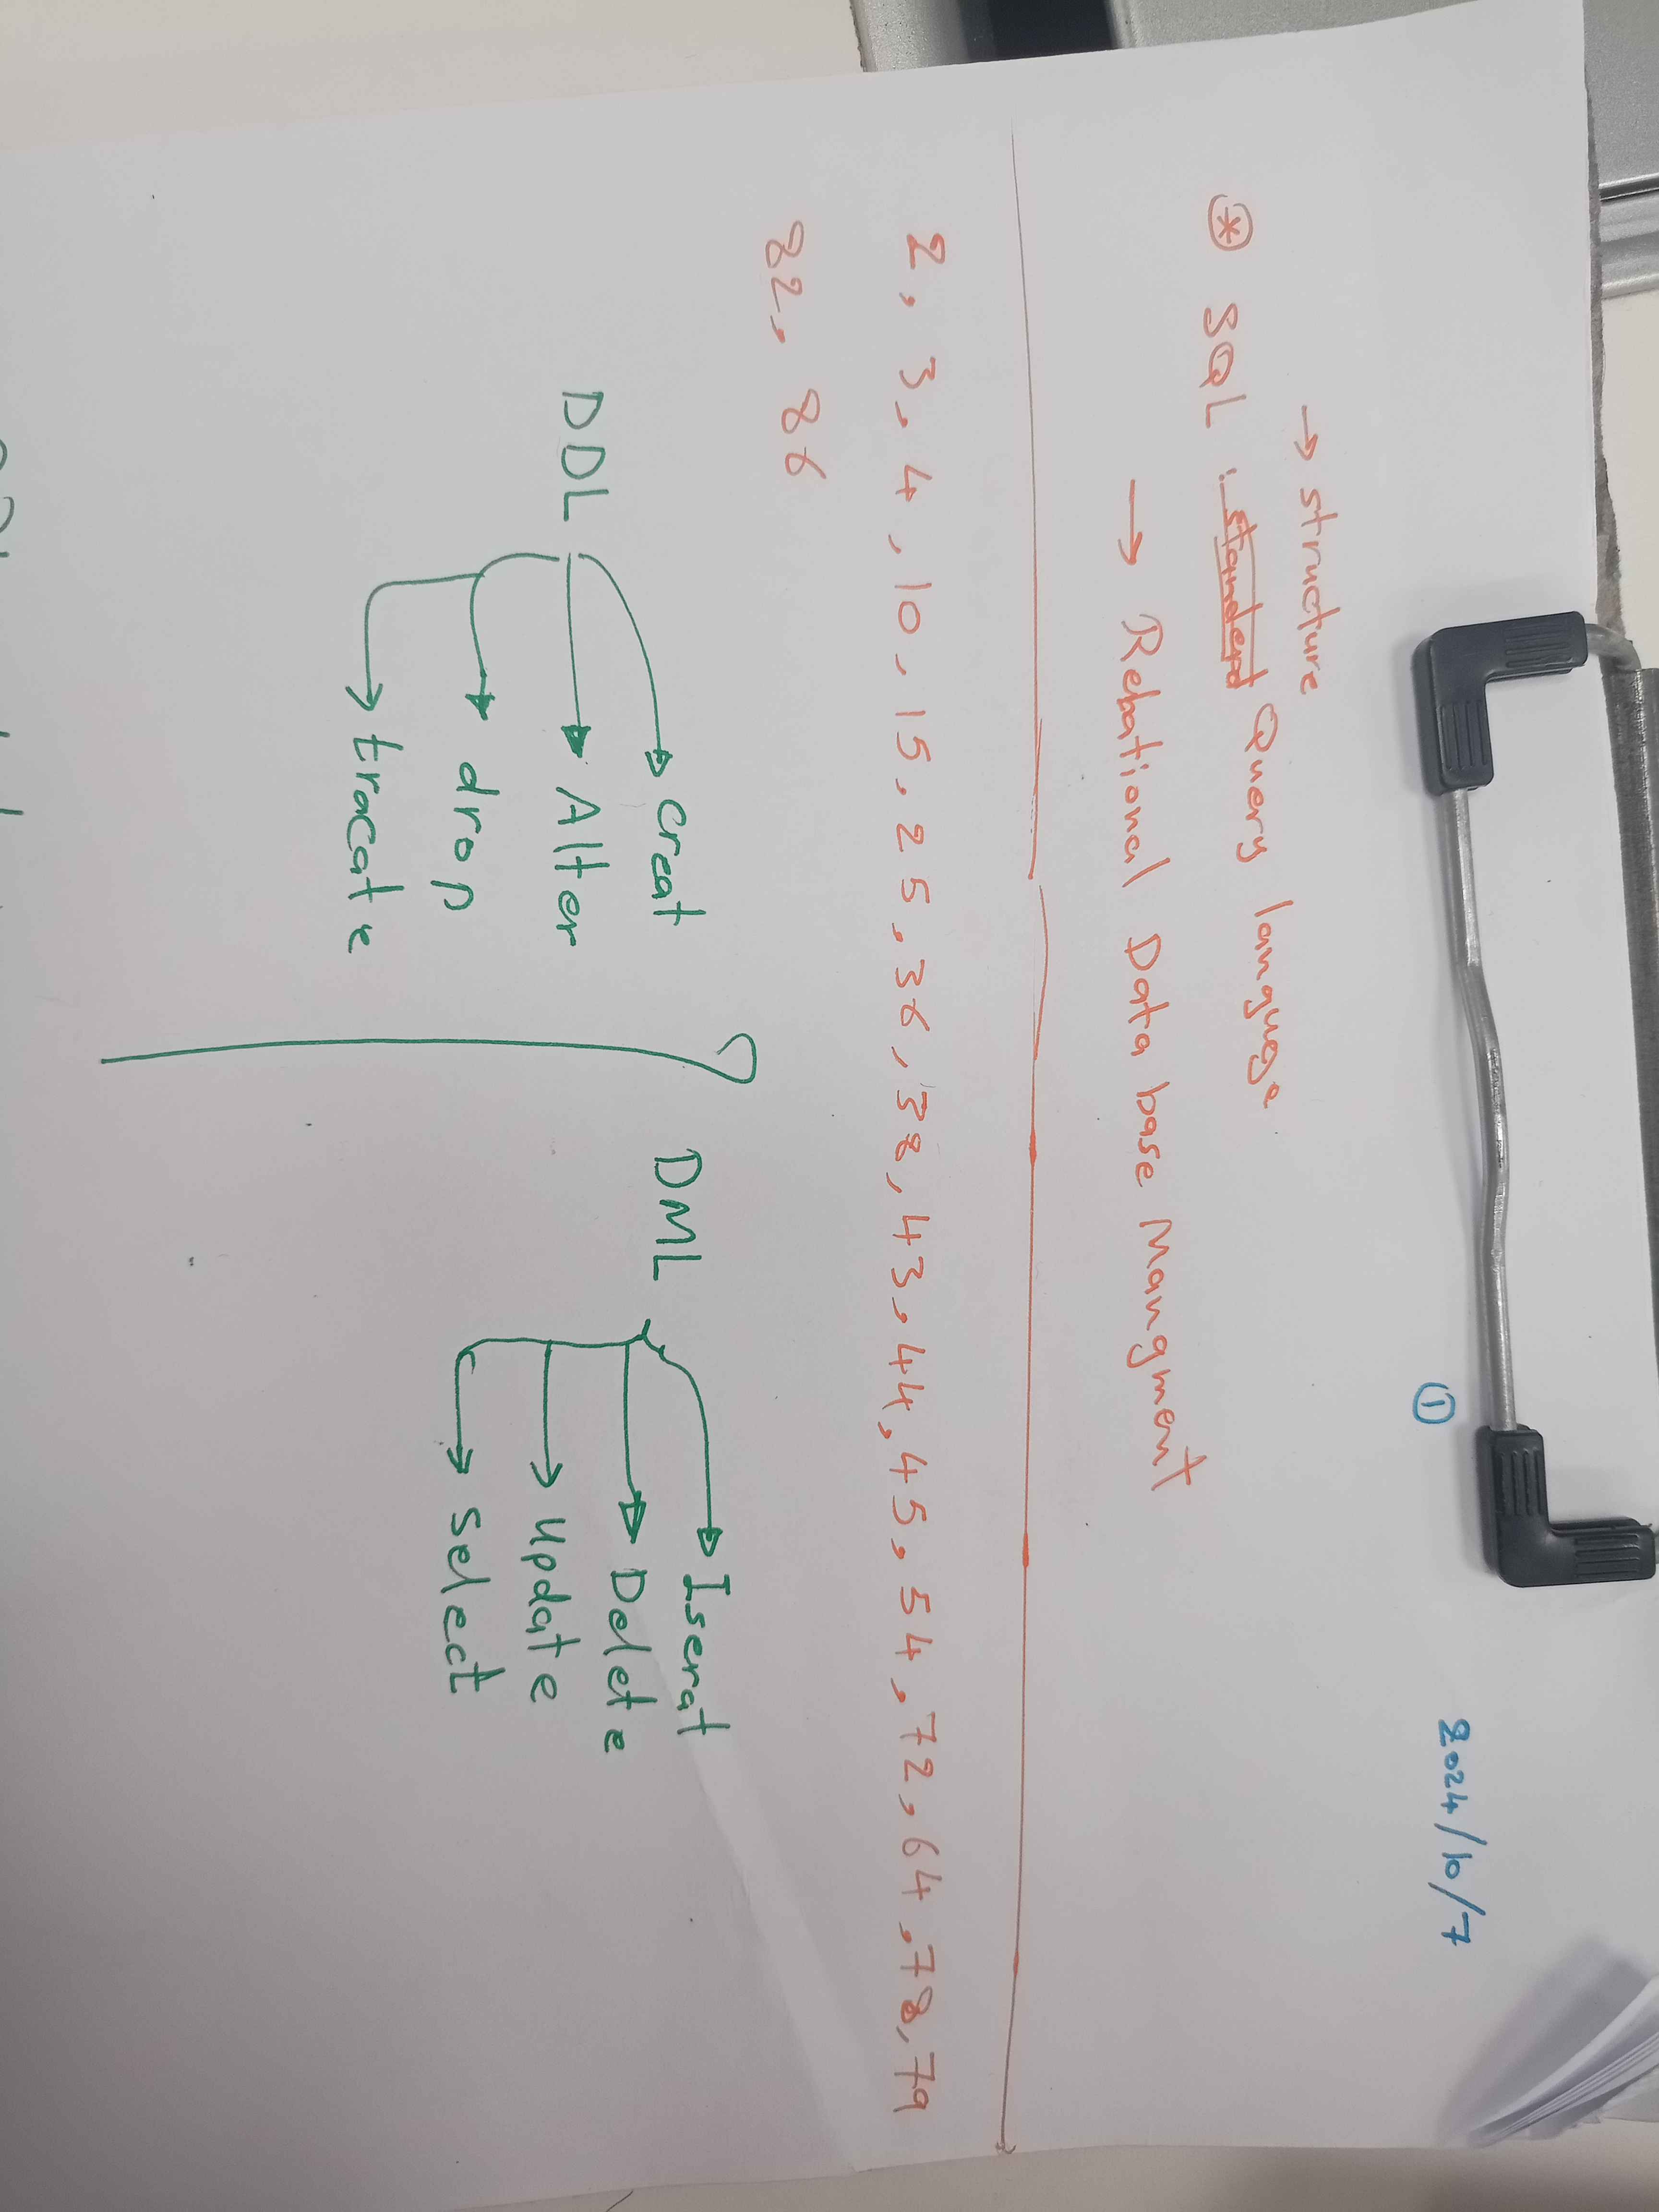 ① 2024/10/7
→ structure
* SQL : standerd Query languge
→ Relational Data base Mangment
2, 3, 4, 10, 15, 25, 36, 38, 43, 44, 45, 54, 72, 64, 78, 79
82, 86
DDL
creat
Alter
drop
tracate
DML
Iserat
Delete
update
select